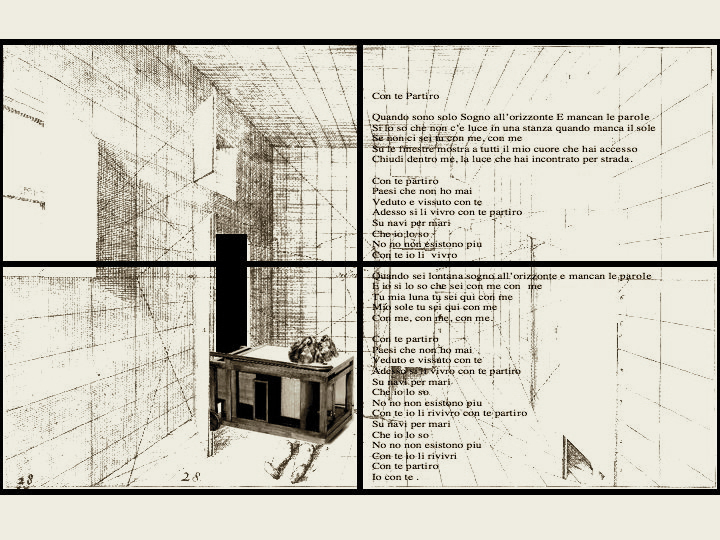 Con te Partiro
Quando sono solo Sogno all'orizzonte E mancan le parole
Si lo so che non c'e luce in una stanza quando manca il sole
Se non ci sei tu con me, con me
Su le finestre mostra a tutti il mio cuore che hai accesso
Chiudi dentro me, la luce che hai incontrato per strada.
Con te partiro
Paesi che non ho mai
Veduto e vissuto con te
Adesso si li vivro con te partiro
Su navi per mari
Che io lo so
No no non esistono piu
Con te io li vivro
Quando sei lontana sogno all'orizzonte e mancan le parole
E io si lo so che sei con me con me
Tu mia luna tu sei qui con me
Mio sole tu sei qui con me
Con me, con me, con me.
Con te partiro
Paesi che non ho mai
Veduto e vissuto con te
Adesso si li vivro con te partiro
Su navi per mari
Che io lo so
No no non esistono piu
Con te io li rivivro con te partiro
Su navi per mari
Che io lo so
No no non esistono piu
Con te io li rivivri
Con te partiro
Io con te .
28
28.